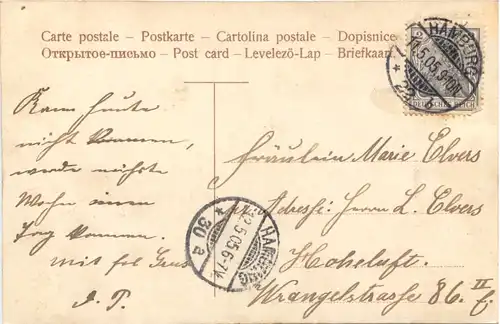 Carte postale – Postkarte – Cartolina postale – Dopisnice
Открытое-письмо – Post card – Levelező-Lap – Briefkaart
HAMBURG
11.5.05.9-10V.
* 22 b
DEUTSCHES REICH
Kann heute
nicht kommen,
werde nächste
Wohe einen
Tag kommen.
mit frl Grus
d. P.
Fräulein Marie Elvers
pr. Adresse: Herrn L. Elvers
Hoheluft.
Wrangelstrasse 86. II
HAMBURG
5.05.6-7V.
* 30 a